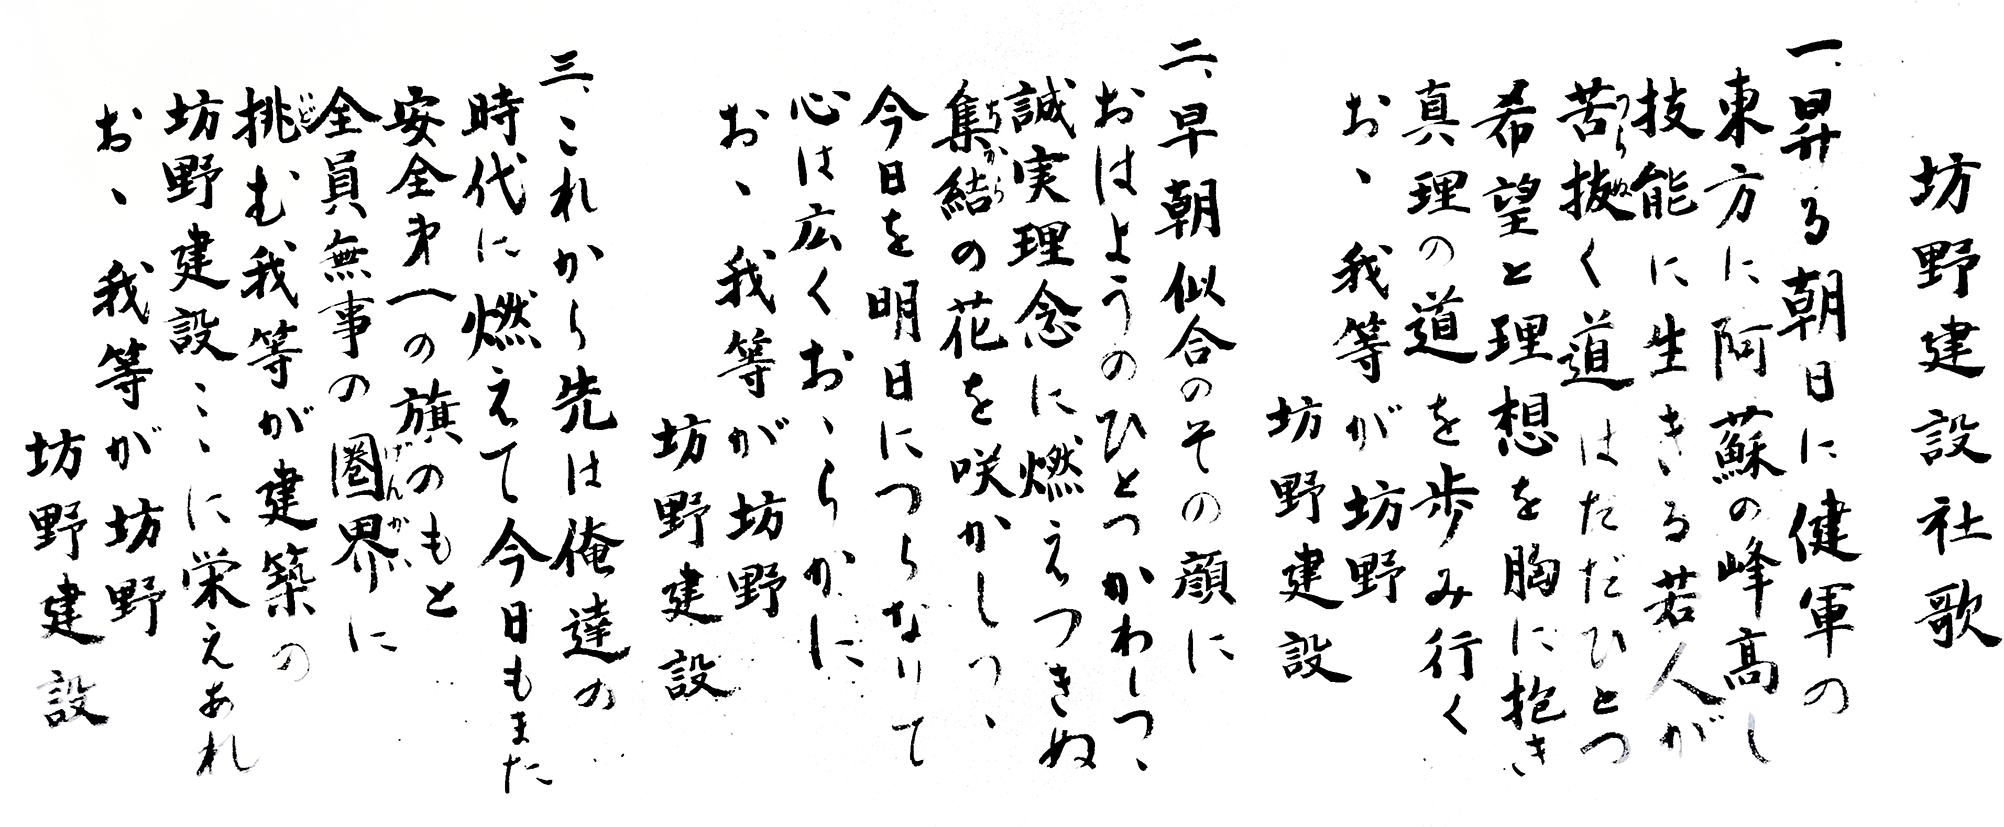 坊野建設社歌
一、昇る朝日に健軍の
東方に阿蘇の峰高し
技能に生きる若人が
苦抜く道はただひとつ
希望と理想を胸に抱き
真理の道を歩み行く
お、我等が坊野
坊野建設
二、早朝似合のその顔に
おはようのひとつかわしつゝ
誠実理念に燃えつきぬ
集結の花を咲かしつゝ
今日を明日につらなりて
心は広くおゝらかに
お、我等が坊野
坊野建設
三、これから先は俺達の
時代に燃えて今日もまた
安全第一の旗のもと
全員無事の圏界に
挑む我等が建築の
坊野建設こゝに栄えあれ
お、我等が坊野
坊野建設